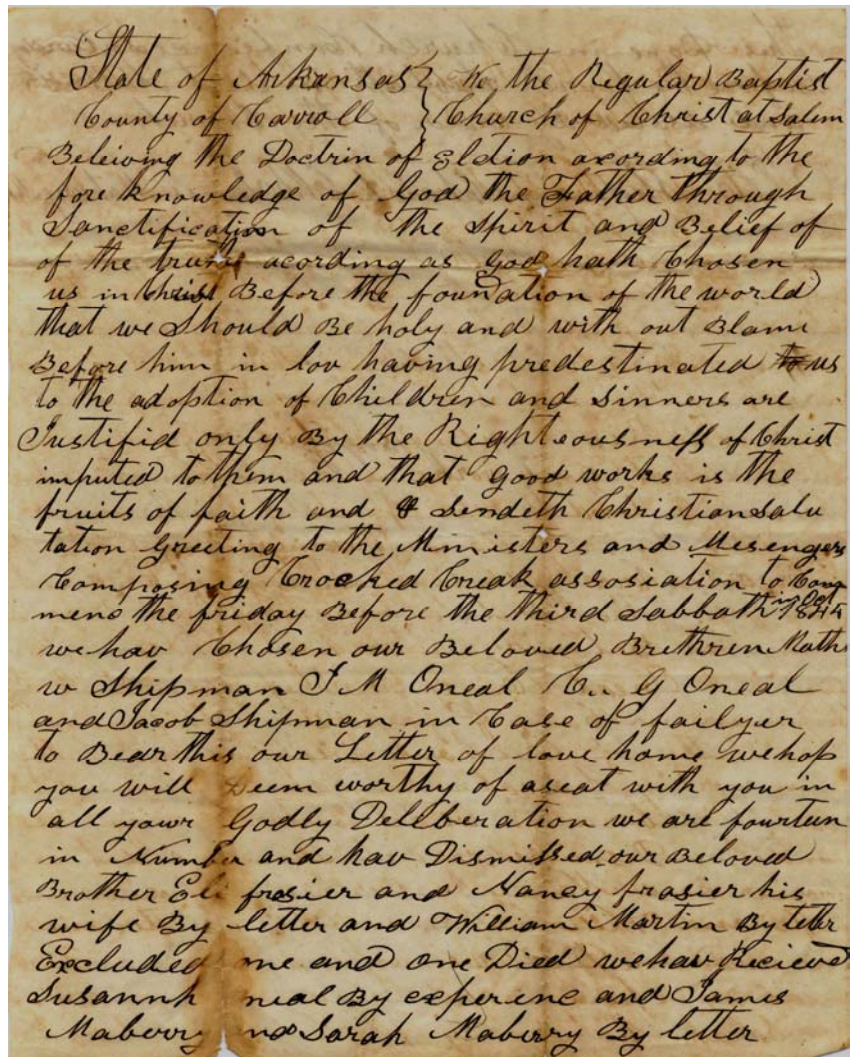 State of Arkansas } To the Regular Baptist
County of Carroll } Church of Christ at Salem
Beleiving the Doctrin of Eletion acording to the
fore knowledge of God the Father through
Sanctification of the Spirit and Belief of
of the truth acording as God hath Chosen
us in Christ Before the foundation of the world
that we Should Be holy and with out Blame
Before him in lov having predestinated to us
to the adoption of Children and Sinners are
Justifid only By the Righteousness of Christ
imputed to them and that good works is the
fruits of faith and & Sendeth Christian Salu
tation Greeting to the Ministers and Mesengers
Composing Crocked Creak assosiation to Com
menc the friday Before the third Sabbath in Oct
we hav Chosen our Beloved Brethren Math
w Shipman J M Oneal C. G Oneal
and Jacob Shipman in Case of failyer
to Bear this our Letter of love home we hop
you will Deem worthy of a seat with you in
all your Godly Deliberation we are fourteen
in Number and hav Dismissed our Beloved
Brother Eli frasier and Nancy frasier his
wife By letter and William Martin By letter
Excluded and one Died we hav Recieved
Susannh By experenc and James
Maberry Sarah Maberry By letter